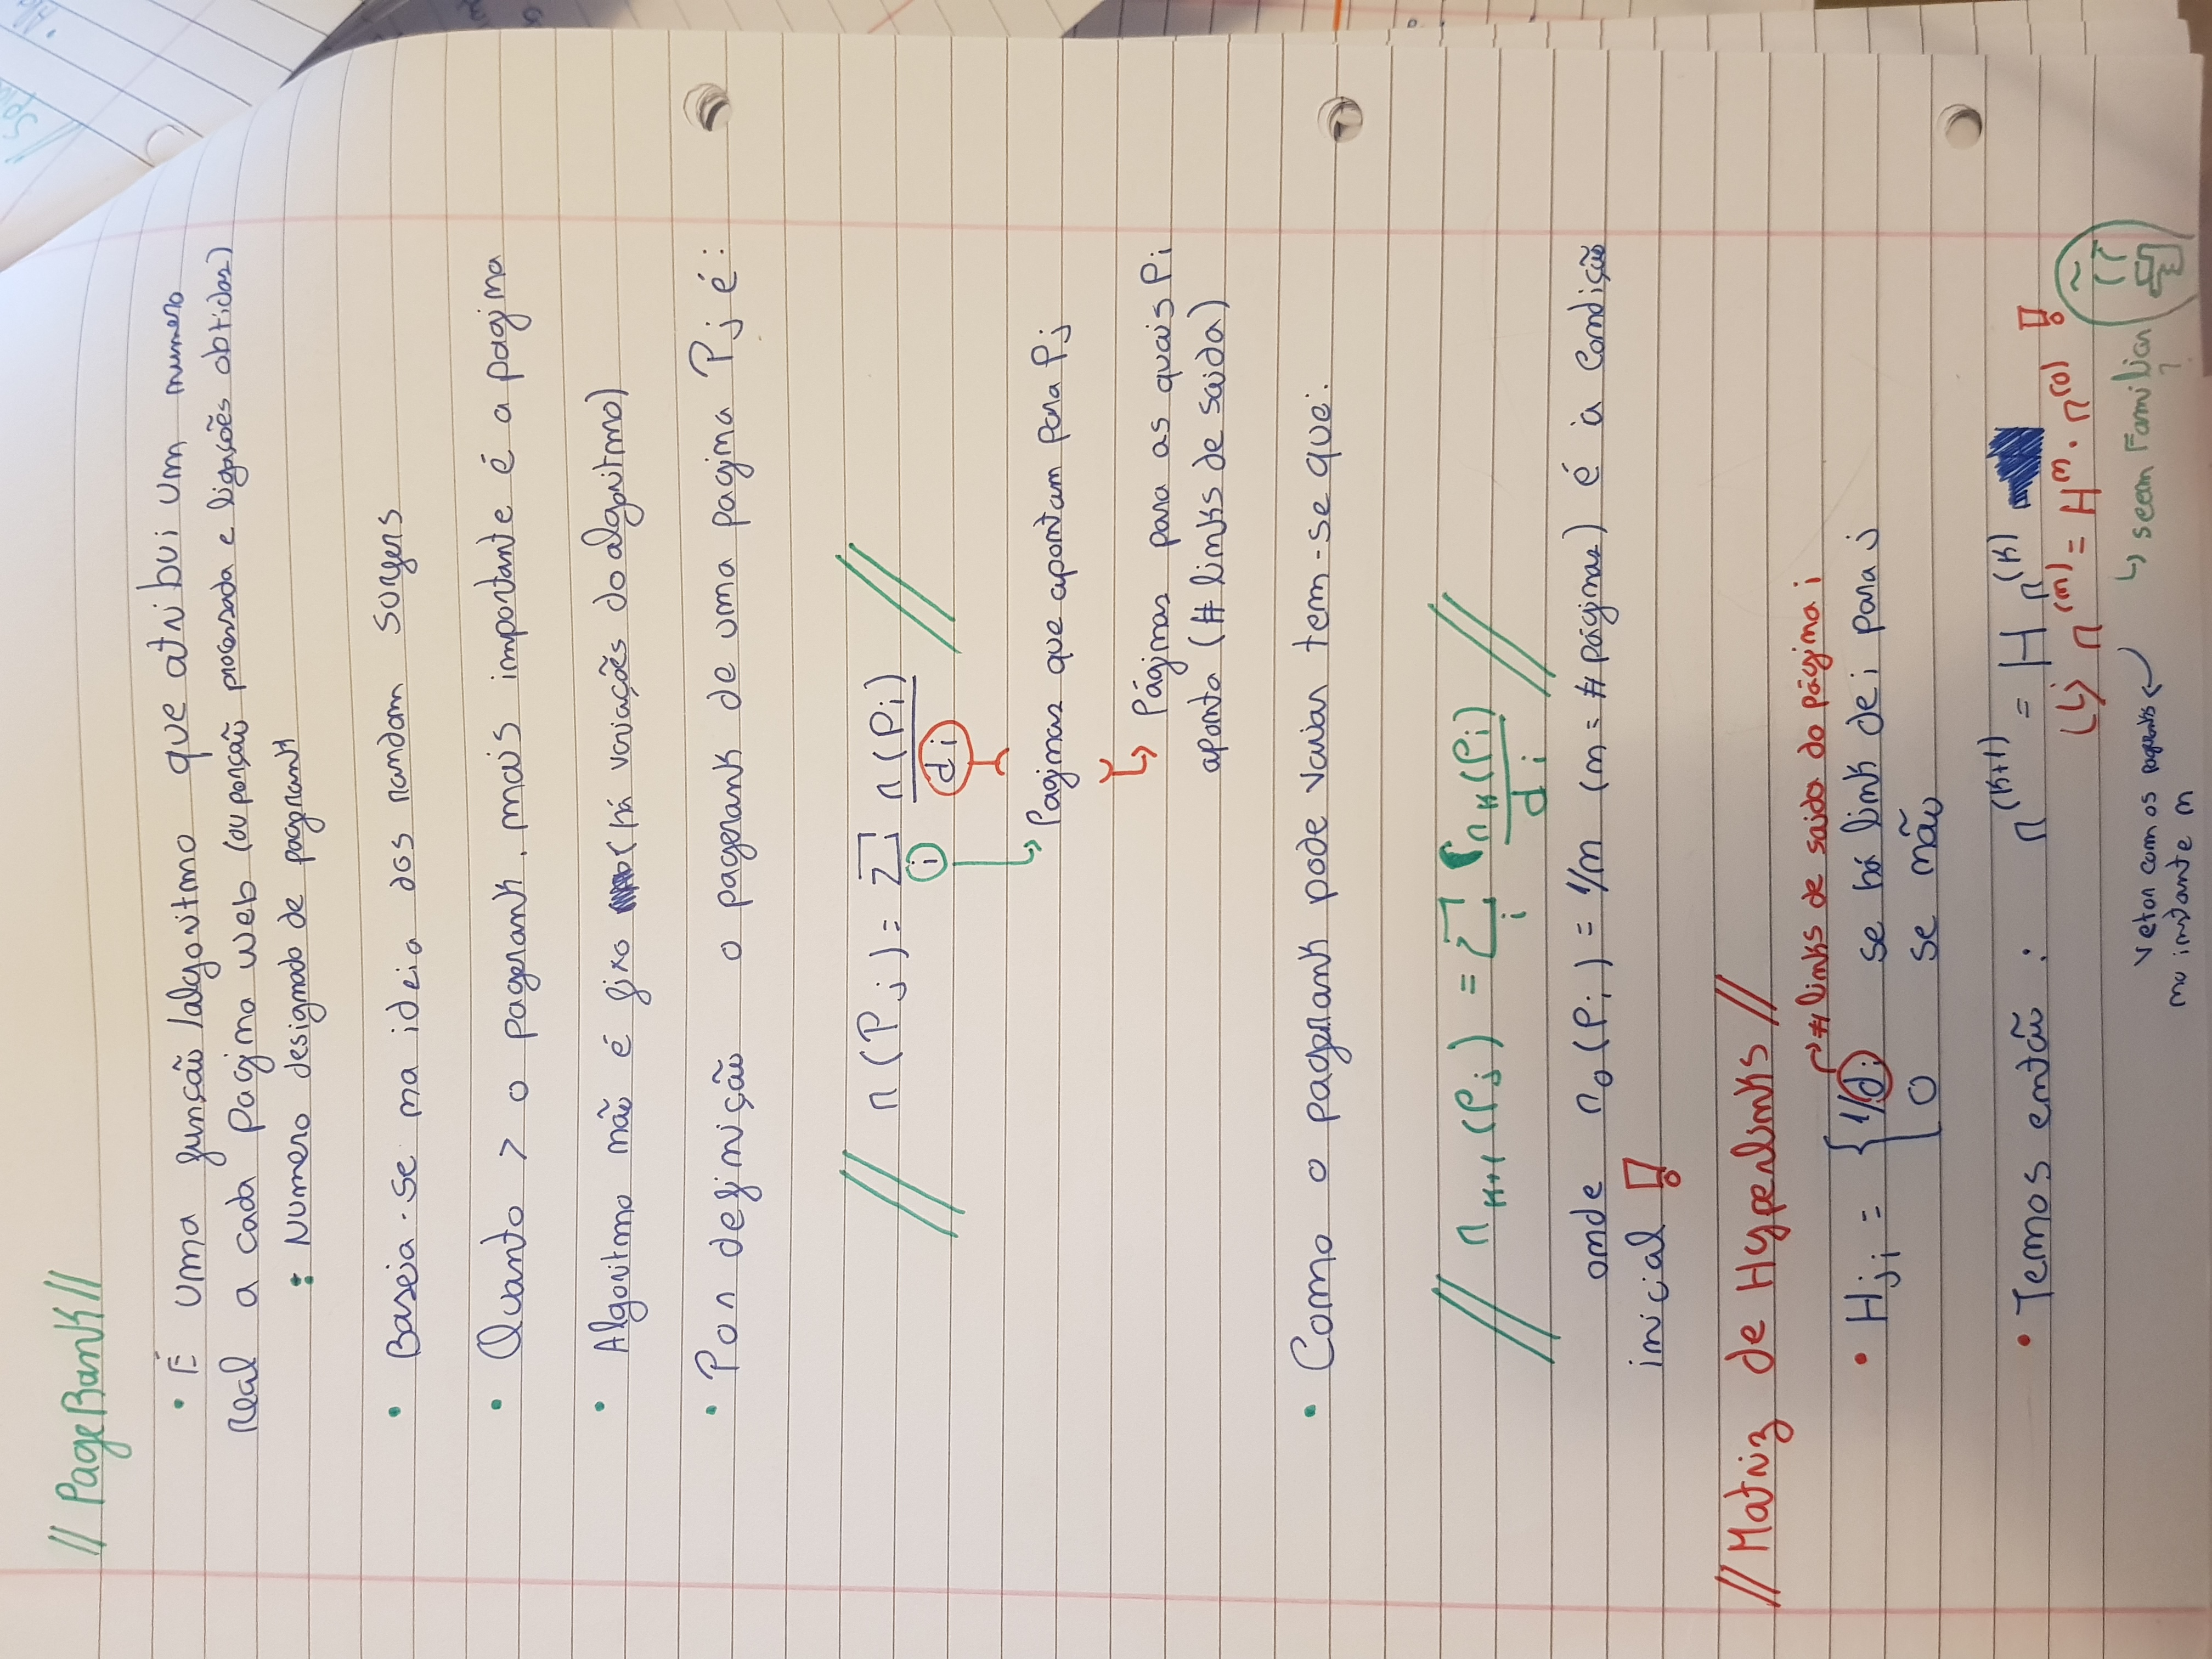 // PageRank //
• É uma função/algoritmo que atribui um numero
real a cada pagina web (ou porção processada e ligações obtidas)
: Numero designado de pagerank
• Baseia-se na ideia dos random sorfers
• Quanto > o pagerank, mais importante é a pagina
• Algoritmo não é fixo (há variações do algoritmo)
• Por definição o pagerank de uma pagina Pj é:
// r(Pj) = Σ r(Pi) //
i di
Paginas que apontam para Pj
Páginas para as quais Pi
aponta (# links de saida)
• Como o pagerank pode variar tem-se que:
// r k+1 (Pj) = Σ r k (Pi) //
i di
onde r0(Pi) = 1/n (n = # páginas) é a condição
inicial !
// Matriz de Hyperlinks //
→ # links de saida do página i
• Hji = { 1/di se há link de i para j
0 se não
• Temos então : r^(k+1) = H r^(k)
(↳ r^(n) = H^n · r^(0) !
↳ seem Familiar
?
Vetor com os pageranks ←
no instante n